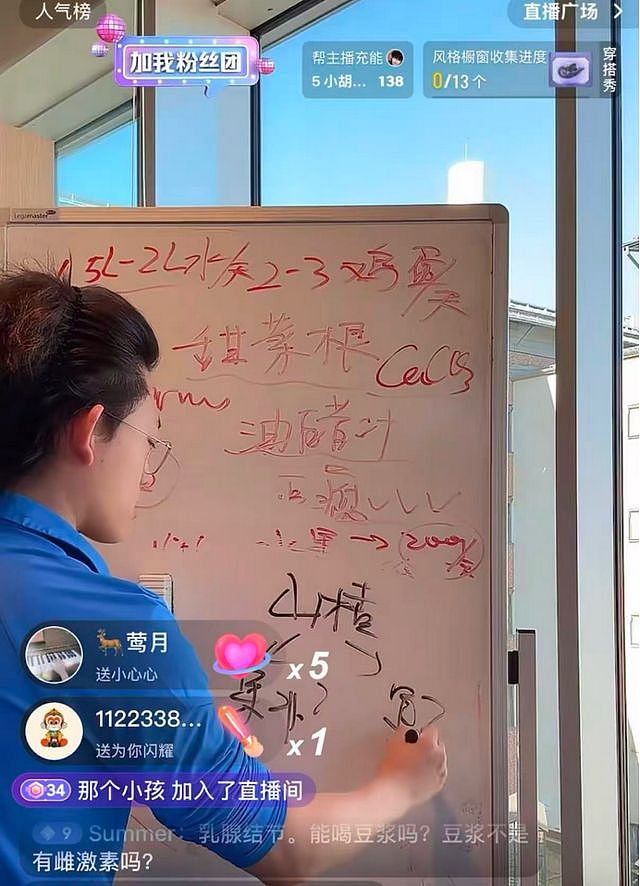 人气榜
直播广场
加我粉丝团
帮主播充能
5 小胡... 138
风格橱窗收集进度
0/13个
穿搭秀
Legamaster
5L-2L水/天 2-3鸡蛋/天
甜菜根
油醋汁
豆
→ 200g/天
山楂
莺月
送小心心
x5
1122338...
送为你闪耀
x1
34 那个小孩 加入了直播间
9 Summer：乳腺结节。能喝豆浆吗？豆浆不是
有雌激素吗？